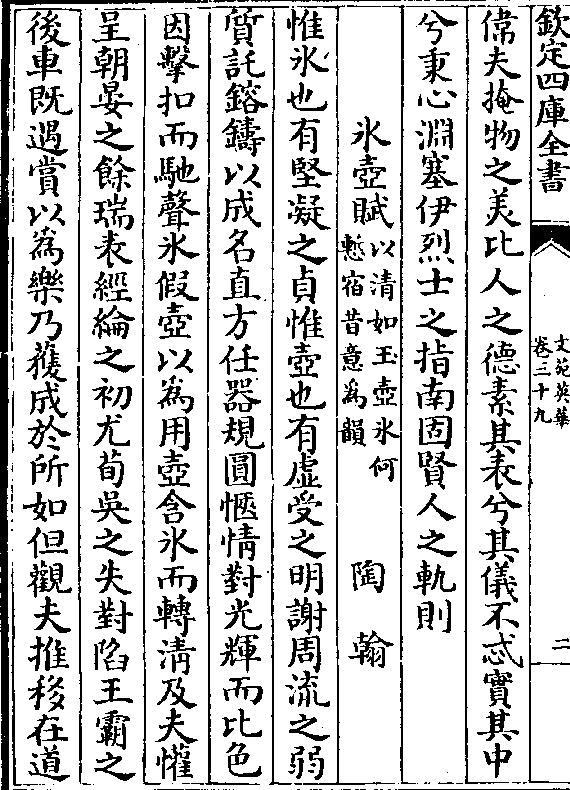 欽定四庫全書
文苑英華
卷三十九
二
偉夫掩物之美比人之德素其表兮其儀不忒實其中
兮秉心淵塞伊烈士之指南固賢人之軌則
氷壺賦以清如玉壺氷何
慙宿昔意為韻
陶翰
惟氷也有堅凝之貞惟壺也有虛受之明謝周流之弱
質託鎔鑄以成名直方任器規圓愜情對光輝而比色
因擊扣而馳聲氷假壺以為用壺含氷而轉清及夫懽
呈朝宴之餘瑞表經綸之初尤荀吳之失對陷王霸之
後車既遇賞以為樂乃獲成於所如但觀夫推移在道